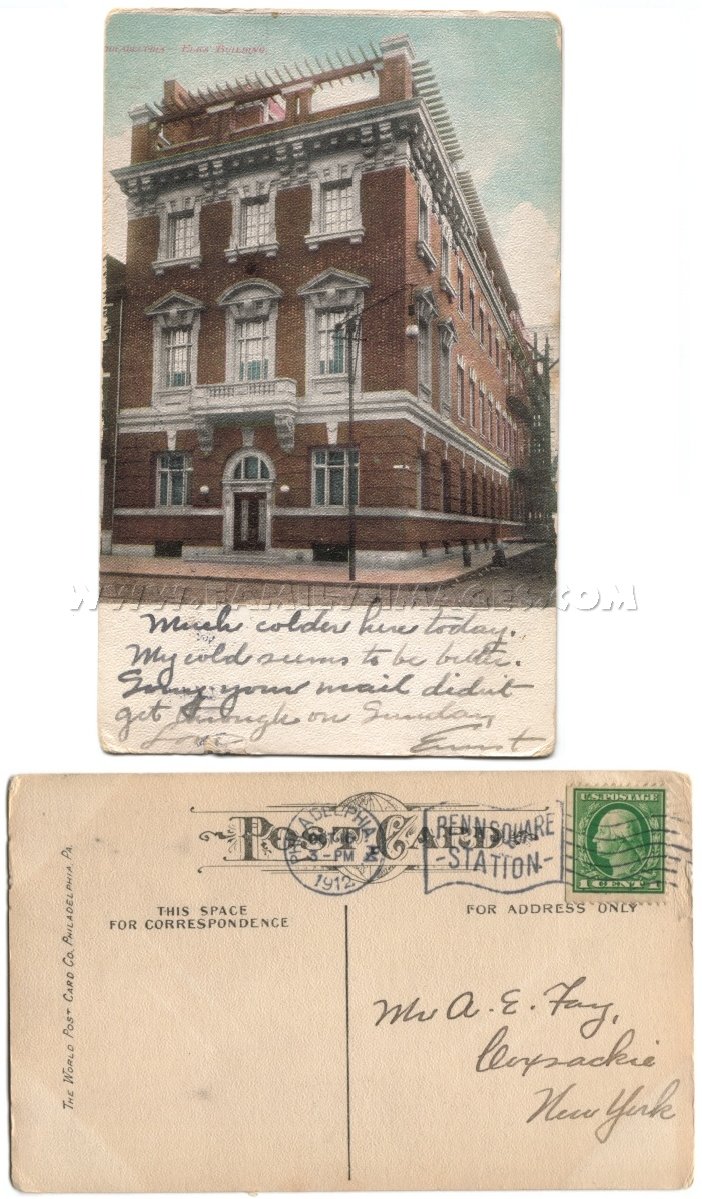 PHILADELPHIA — ELKS' BUILDING.
WWW.FAMILY-IMAGES.COM
Much colder here today.
My cold seems to be better.
Sorry your mail didn't
get through on Sunday
Love Ernst
POST CARD
PHILADELPHIA, PA.
OCT
3-PM
1912
PENN SQUARE
-STATION-
U.S. POSTAGE
1 CENT 1
THIS SPACE
FOR CORRESPONDENCE
FOR ADDRESS ONLY
THE WORLD POST CARD CO. PHILADELPHIA, PA.
Mr A. E. Fay,
Coxsackie
New York